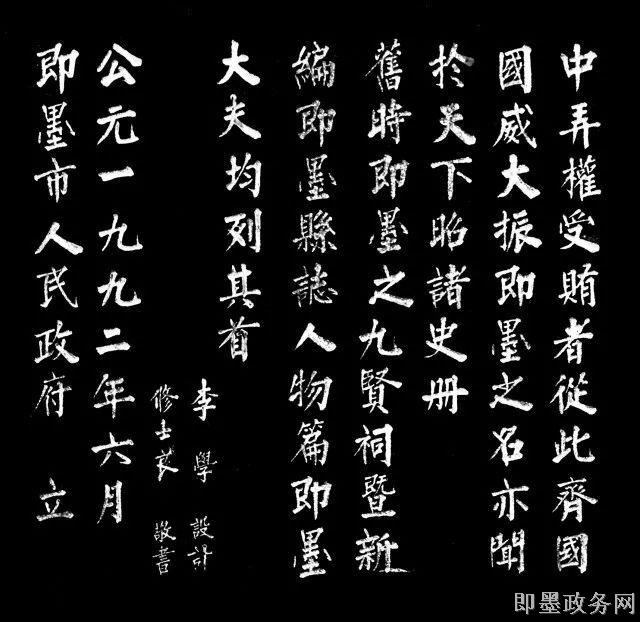 中弄權受賄者從此齊國
國威大振即墨之名亦聞
於天下昭諸史册
舊時即墨之九賢祠暨新
編即墨縣誌人物篇即墨
大夫均列其首
李學 設計
修士良 敬書
公元一九九二年六月
即墨市人民政府 立
即墨政务网